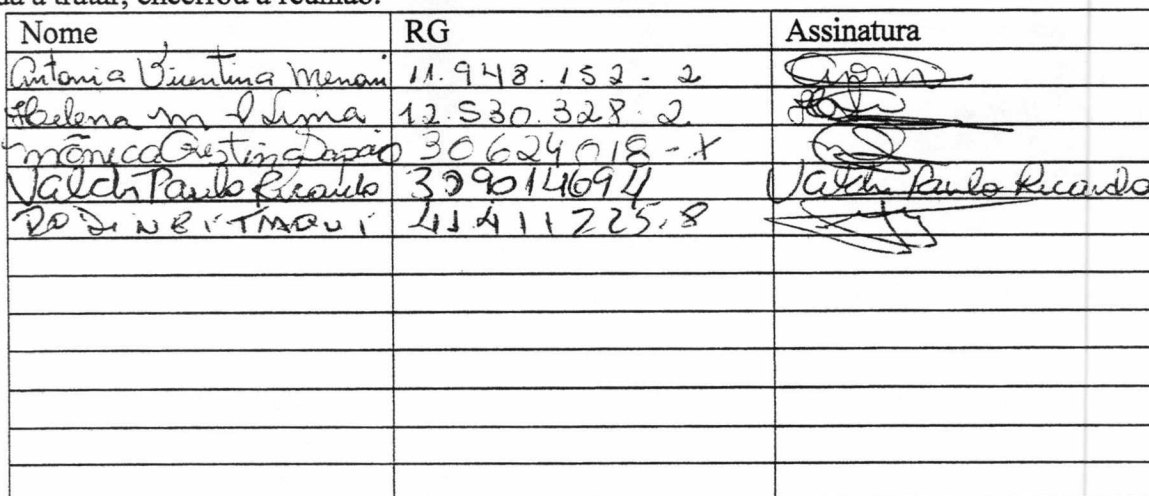 a tratar, encerrou a reunião.
Nome RG Assinatura
Antonia Vicentina Menani 11.948.152-2
Helena m Lima 12.530.328-2
Mônica Cristina 30624018-X
Valdir Paulo Ricardo 309014694 Valdir Paulo Ricardo
41411225.8